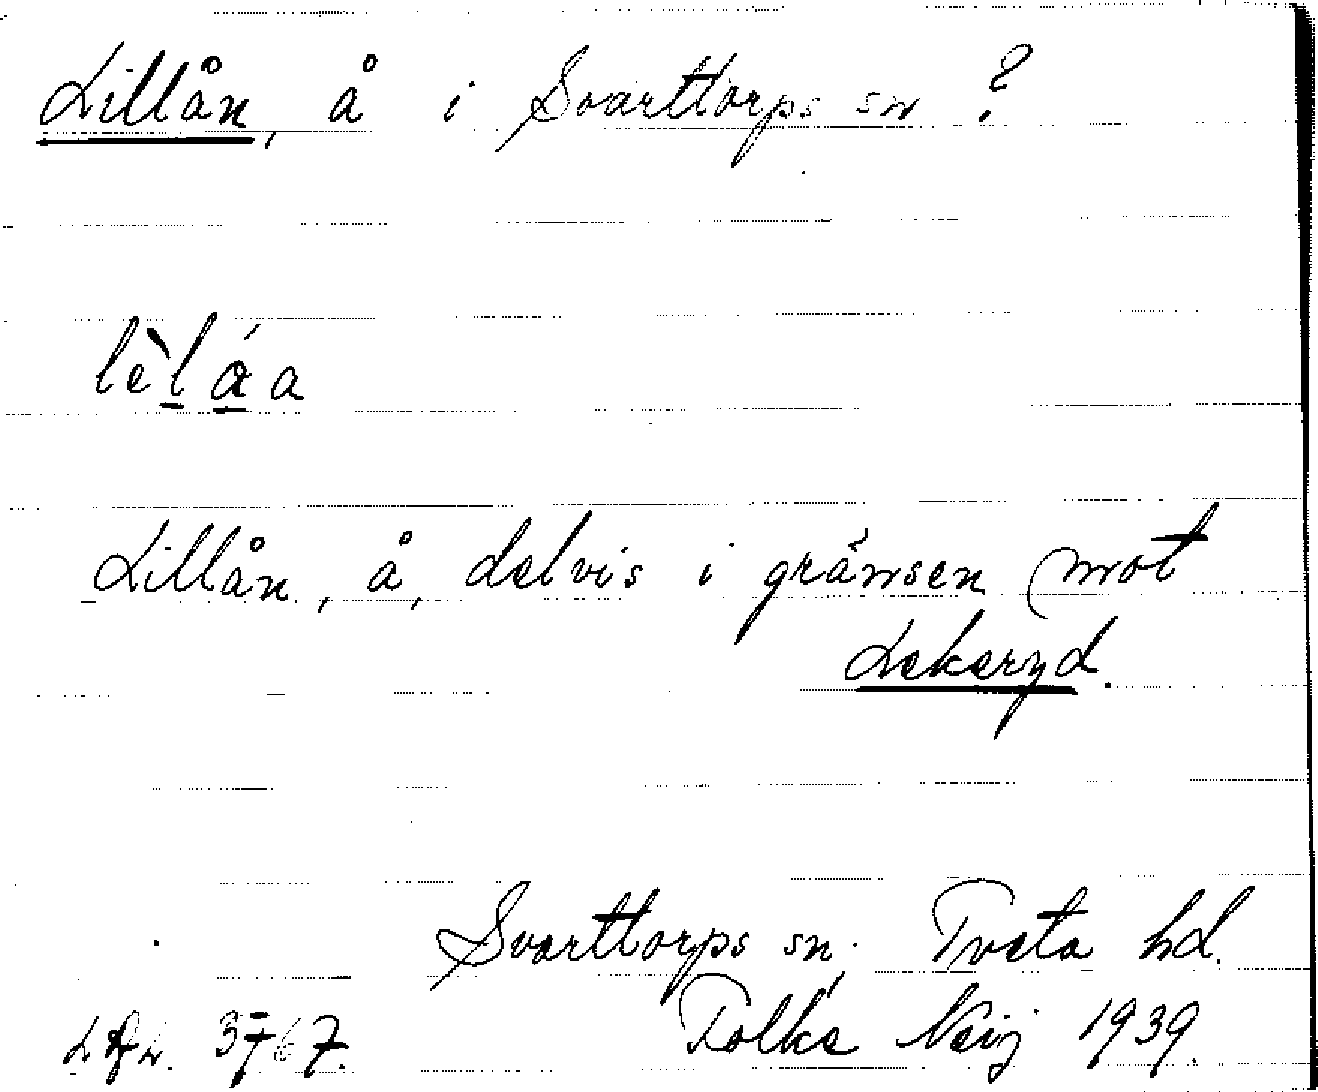 Lillån, å i Svarttorps sn ?
lèláa
Lillån, å, delvis i gränsen mot
Lekeryd.
Svarttorps sn. Tveta hd.
Folke Neij 1939.
3767.